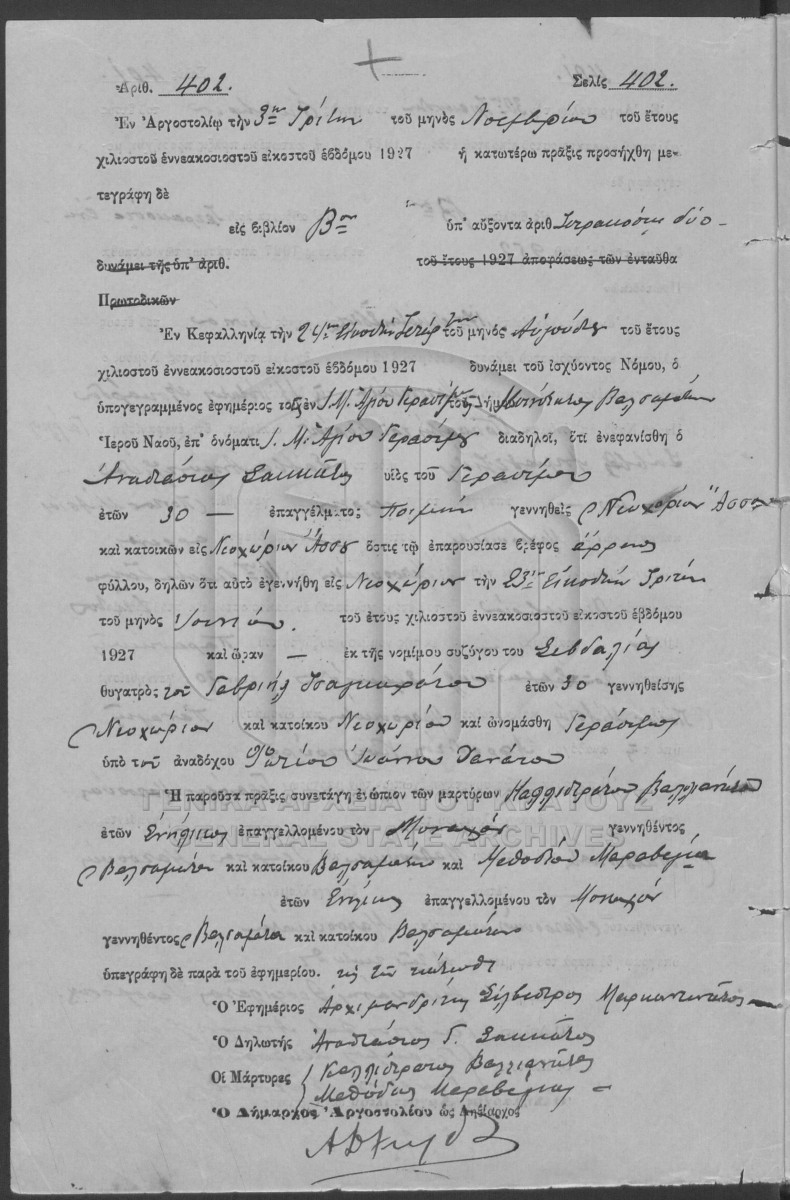 Ἀριθ. 402. Σελὶς 402.
Ἐν Ἀργοστολίῳ τὴν 3ην Τρίτην τοῦ μηνὸς Νοεμβρίου τοῦ ἔτους
χιλιοστοῦ ἐννεακοσιοστοῦ εἰκοστοῦ ἑβδόμου 1927 ἡ κατωτέρω πρᾶξις προσήχθη με-
τεγράφη δὲ
εἰς βιβλίον Βον ὑπ' αὔξοντα ἀριθ. Τετρακόσια δύο -
δυνάμει τῆς ὑπ' ἀριθ. τοῦ ἔτους 1927 ἀποφάσεως τῶν ἐνταῦθα
Πρωτοδικῶν
Ἐν Κεφαλληνίᾳ τὴν 24ην Εἰκοστὴν Τετάρτην τοῦ μηνὸς Αὐγούστου τοῦ ἔτους
χιλιοστοῦ ἐννεακοσιοστοῦ εἰκοστοῦ ἑβδόμου 1927 δυνάμει τοῦ ἰσχύοντος Νόμου, ὁ
ὑπογεγραμμένος ἐφημέριος τοῦ ἐν Ι. Μ. Ἁγίου Γερασίμου τοῦ Δήμου Κοινότητος Βαλσαμάτων
Ἱεροῦ Ναοῦ, ἐπ' ὀνόματι Ι. Μ. Ἁγίου Γερασίμου διαδηλοῖ, ὅτι ἐνεφανίσθη ὁ
Ἀναστάσιος Σακκᾶτος υἱὸς τοῦ Γερασίμου
ἐτῶν 30 — ἐπαγγέλματος Ποιμὴν γεννηθεὶς Νεοχώριον Ἄσσου
καὶ κατοικῶν εἰς Νεοχώριον Ἄσσου ὅστις τῷ ἐπαρουσίασε βρέφος ἄρρενος
φύλλου, δηλῶν ὅτι αὐτὸ ἐγεννήθη εἰς Νεοχώριον τὴν 23ην Εἰκοστὴν Τρίτην
τοῦ μηνὸς Ἰουνίου. τοῦ ἔτους χιλιοστοῦ ἐννεακοσιοστοῦ εἰκοστοῦ ἑβδόμου
1927 καὶ ὥραν — ἐκ τῆς νομίμου συζύγου του Σεβδαλίας
θυγατρὸς τοῦ Γαβριὴλ Τσαγκαράτου ἐτῶν 30 γεννηθείσης
Νεοχώριον καὶ κατοίκου Νεοχωρίου καὶ ὠνομάσθη Γεράσιμος
ὑπὸ τοῦ ἀναδόχου Φωτίου Ἰωάννου
Ἡ παροῦσα πρᾶξις συνετάγη ἐνώπιον τῶν μαρτύρων Καλλιστράτου Βαλλιανάτου
ΓΕΝΙΚΑ ΑΡΧΕΙΑ ΤΟΥ ΚΡΑΤΟΥΣ
ἐτῶν Ἐνήλικος ἐπαγγελλομένου τὸν Μοναχόν γεννηθέντος
GENERAL STATE ARCHIVES
Βαλσαμάτα καὶ κατοίκου Βαλσαμάτων καὶ Μεθοδίου Μαραβέγια
ἐτῶν Ἐνήλικος ἐπαγγελλομένου τὸν Μοναχόν
γεννηθέντος Βαλσαμάτα καὶ κατοίκου Βαλσαμάτων
ὑπεγράφη δὲ παρὰ τοῦ ἐφημερίου. ὡς
Ὁ Ἐφημέριος Ἀρχιμανδρίτης Σίλβεστρος Μαρκαντωνᾶτος
Ὁ Δηλωτὴς Ἀναστάσιος Γ. Σακκᾶτος
Οἱ Μάρτυρες Καλλίστρατος Βαλλιανᾶτος
Μεθόδιος Μαραβέγιας -
Ὁ Δήμαρχος Ἀργοστολίου ὡς Ληξίαρχος